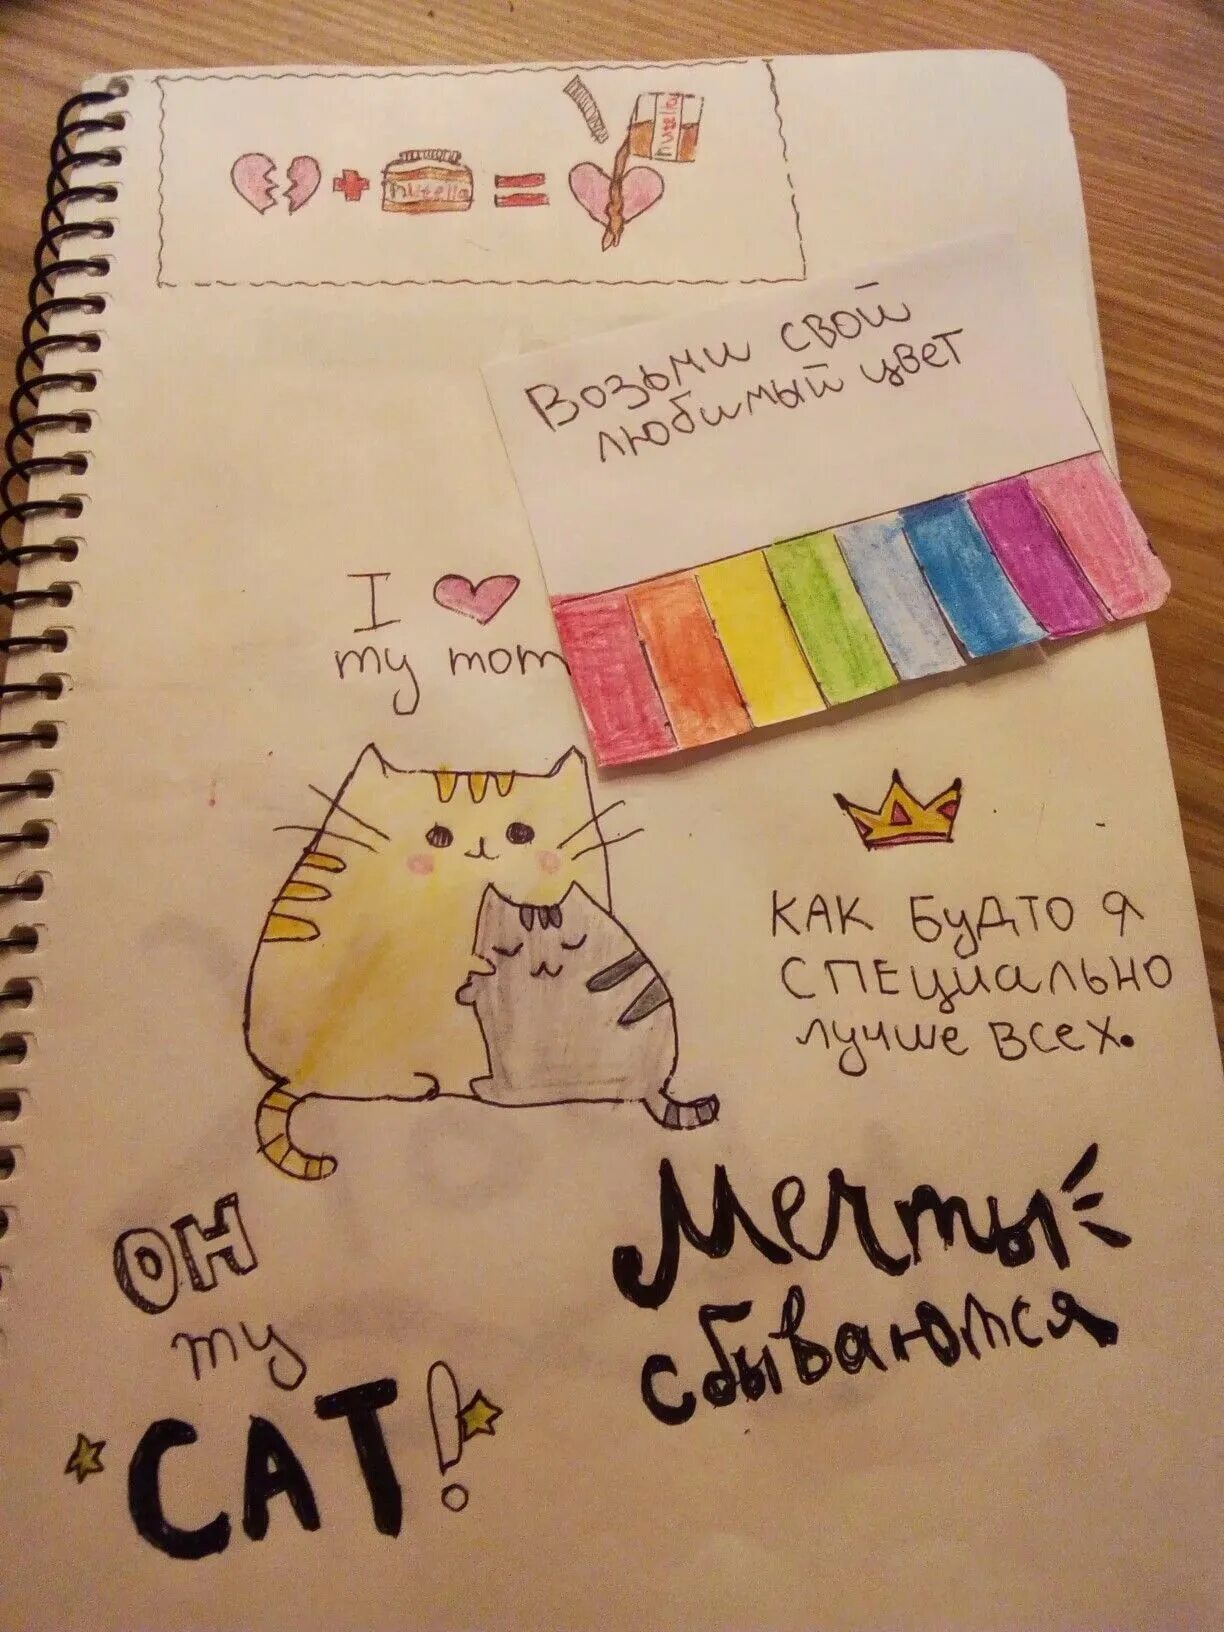 nutella
nutella
Возьми свой
любимый цвет
I
my mom
КАК БУДТО Я
СПЕЦИАЛЬНО
лучше всех.
Мечты
сбываются
OH
my
CAT!